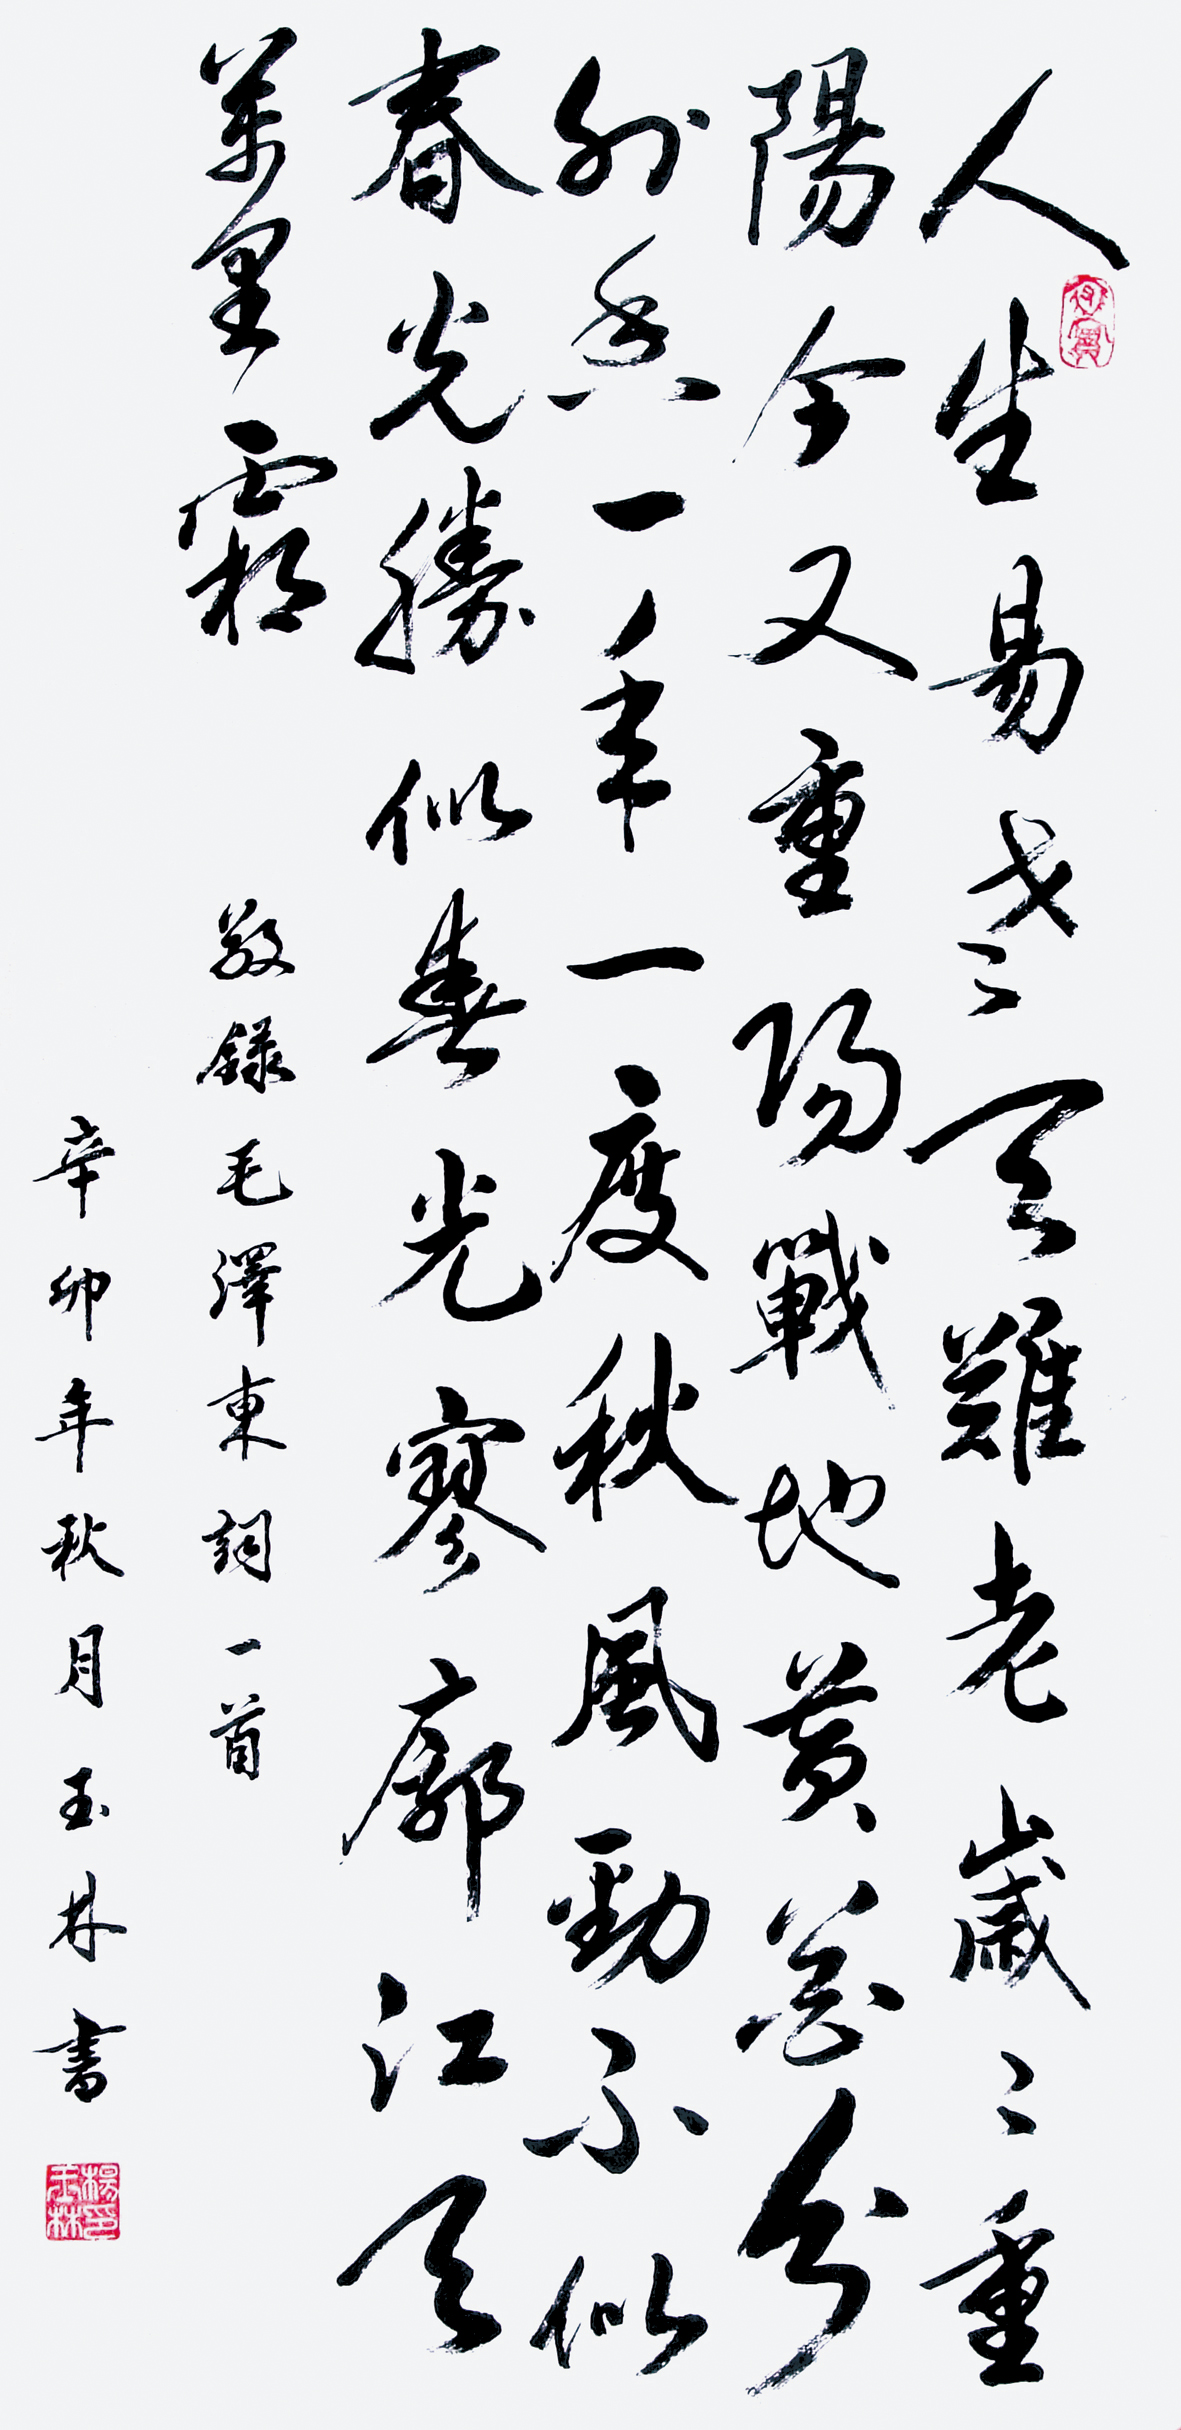 人生易老天難老歲〻重
陽今又重陽戰地黃花分
外香一年一度秋風勁不似
春光勝似春光寥廓江天
萬里霜
敬錄毛澤東詞一首
辛卯年秋月玉林書
楊印玉林